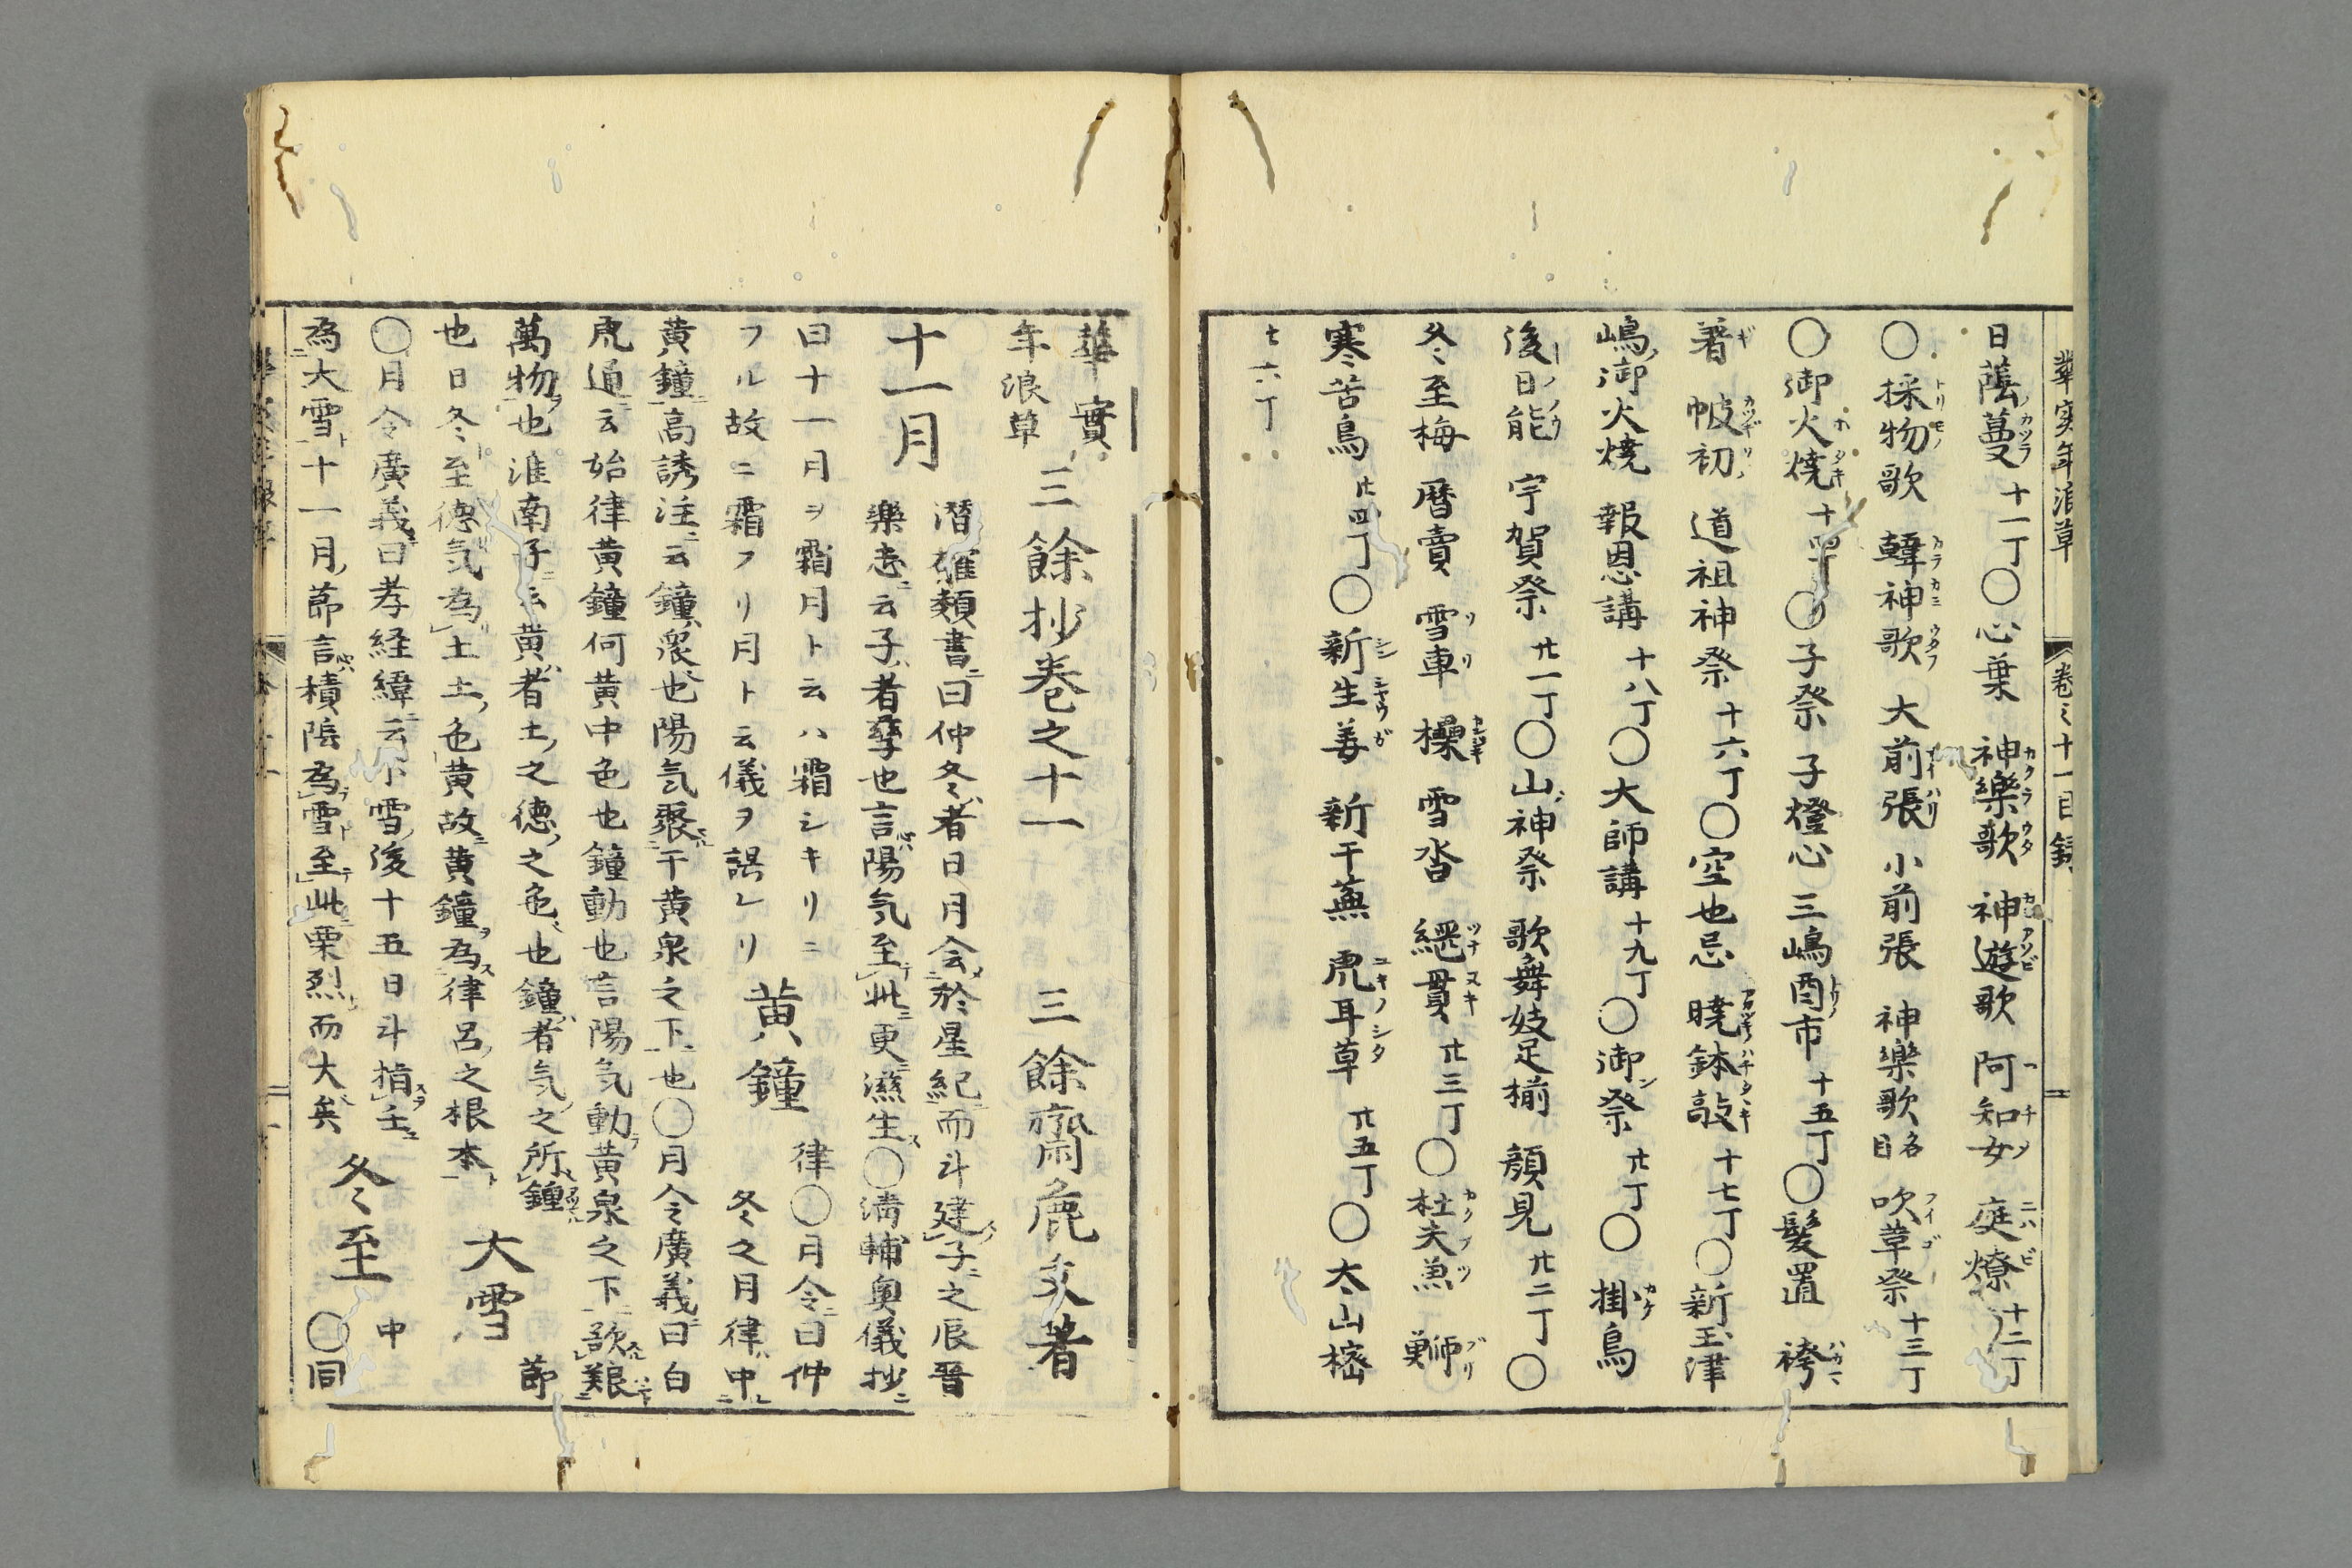 華実年浪草 巻之十一目録
日蔭蔓 十一丁〇心葉 神樂歌 神遊歌 阿知女 庭燎 十二丁
〇採物歌 韓神歌 大前張 小前張 神樂歌名目 吹革祭 十三丁
〇御火燒 十四丁〇子祭 子燈心 三嶋酉市 十五丁〇髪置 袴
著 帔初 道祖神祭 十六丁〇空也忌 暁鉢敲 十七丁〇新玉津
嶋御火燒 報恩講 十八丁〇大師講 十九丁〇御祭 廿丁〇掛鳥
後日能 宇賀祭 廿一丁〇山神祭 歌舞妓足揃 顔見 廿二丁〇
冬至梅 暦賣 雪車 橇 雪沓 綱貫 廿三丁〇杜夫魚 鰤
寒苦鳥 廿四丁〇新生姜 新干蕪 虎耳草 廿五丁〇太山樒
廿六丁
華實年浪草 三餘抄巻之十一 三餘齋麁文著
十一月 潜確類書ニ曰仲冬者日月会於星紀而斗建子之辰晋
樂志ニ云子者孳也言陽気至此更滋生〇清輔奥儀抄ニ
曰十一月ヲ霜月ト云ハ霜シキリニ
フル故ニ霜フリ月ト云儀ヲ誤レリ 黄鐘 律〇月令ニ曰仲
冬之月律中
黄鐘高誘注ニ云鐘聚也陽気聚于黄泉之下也〇月令廣義ニ曰白
虎通ニ云始律黄鐘何黄中色也鐘動也言陽気動黄泉之下歆
萬物也淮南子ニ云黄者土之德之色也鐘者気之所鐘
也日冬至德気為土土色黄故黄鐘為律呂之根本 大雪 節
〇月令廣義ニ曰孝経緯ニ云小雪後十五日斗指壬
為大雪十一月節言積陰為雪至此栗烈而大矣 冬至 中
〇同